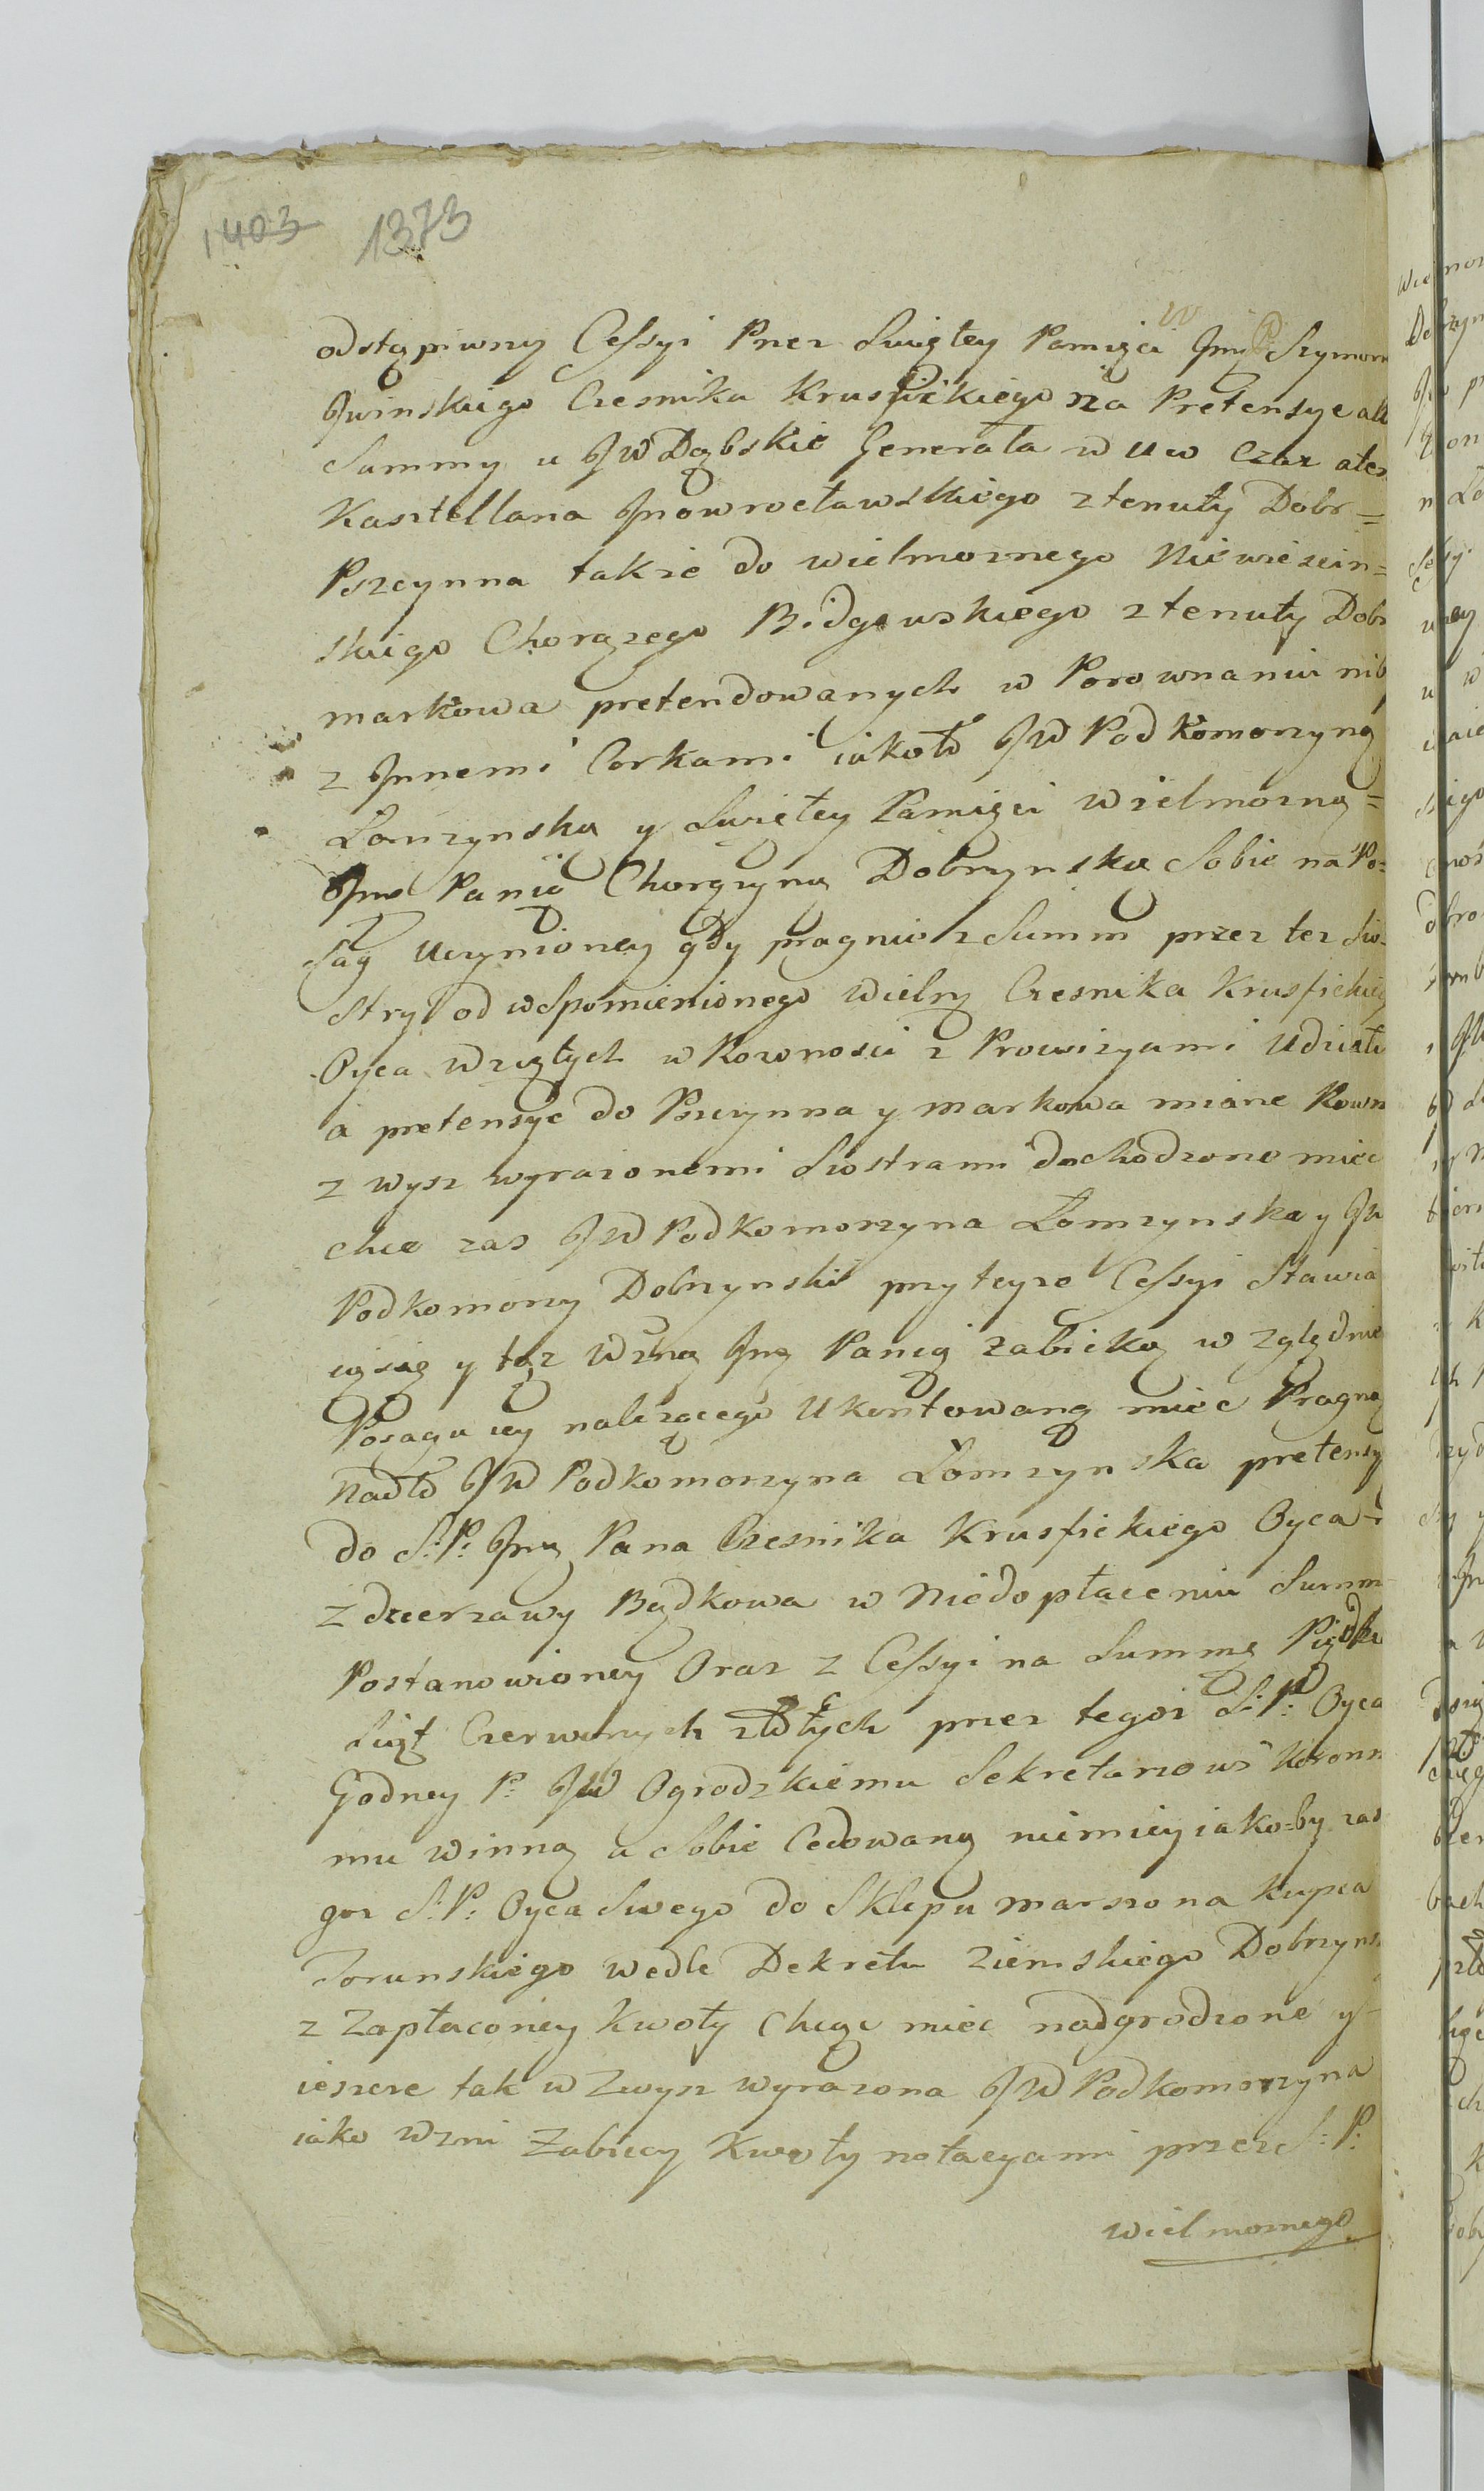 1403 1373
odstąpiwny Cessyi Przez Swiętey Pamięci Jmę P Szymon
Iwinskiego Czesnika Kruswickiego za Pretensye alb
Summy u JW Dąbskie Generała w u w Czas
Kasztellana Jnowrocławskiego z tenuty Dobr=
Pszczynna takze do wielmoznego Niewiescin=
skiego Chorązego Bidgowskiego z tenuty Dobr
markowa pretendowanych w Porownaniu nib
z Jnnemi Corkami iakoto JW Podkomorzyną
Łomzynską y Swiętey Pamięci Wielmozną=
Jmę Panią Chorązyną Dobrzynską Sobie na Po=
sag Uczynioney gdy pragnie z Summ przez tez Sio=
stry od wspomienionego Wielny Czesnika Kruszfickieg
Oyca Wziętych w Rownosci z Prowizyami Udziału
a pretensye do Pszczynna y markowa miane Rown
z wysz wyrazonemi Siostrami dochodzone miec
chce zas JW Podkomorzyna Łomzynska y JW
Podkomorzy Dobrzynski przyteyze Cessyi Stawia
iąsię y też Wzną Jmę Panią Zabicką w Zględnie
Posagu iey nalezącego Ukontowaną miec Pragną
Nadto JW Podkomorzyna Łomzynska pretensy
do S: P: Jmę Pana Czesnika Krusfickiego Oyca
z dzierzawy Bądkowa w Niedopłaceniu Summ
Postanowioney Oraz z Cessyi na Summę Pięc
Siąt Czerwonych złotych przez tegoz S: P: Oyca
Godney P: JW Ogrodzkiemu Sekretarzowi Koronn
mu winną a Sobie Cedowaną niemiey iako=by zas
goz S: P: Oyca Swego do Sklepu marszona Kupca
Torunskiego wedle Dekretu Ziemskiego Dobrzyns
z Zapłaconey Kwoty Chcąc miec nadgrodzone y
ieszcze tak w Zwysz wyrazona JW Podkomorzyna
iako Wzni Zabiccy Kwoty notacyami przez S: P:
wielmoznego